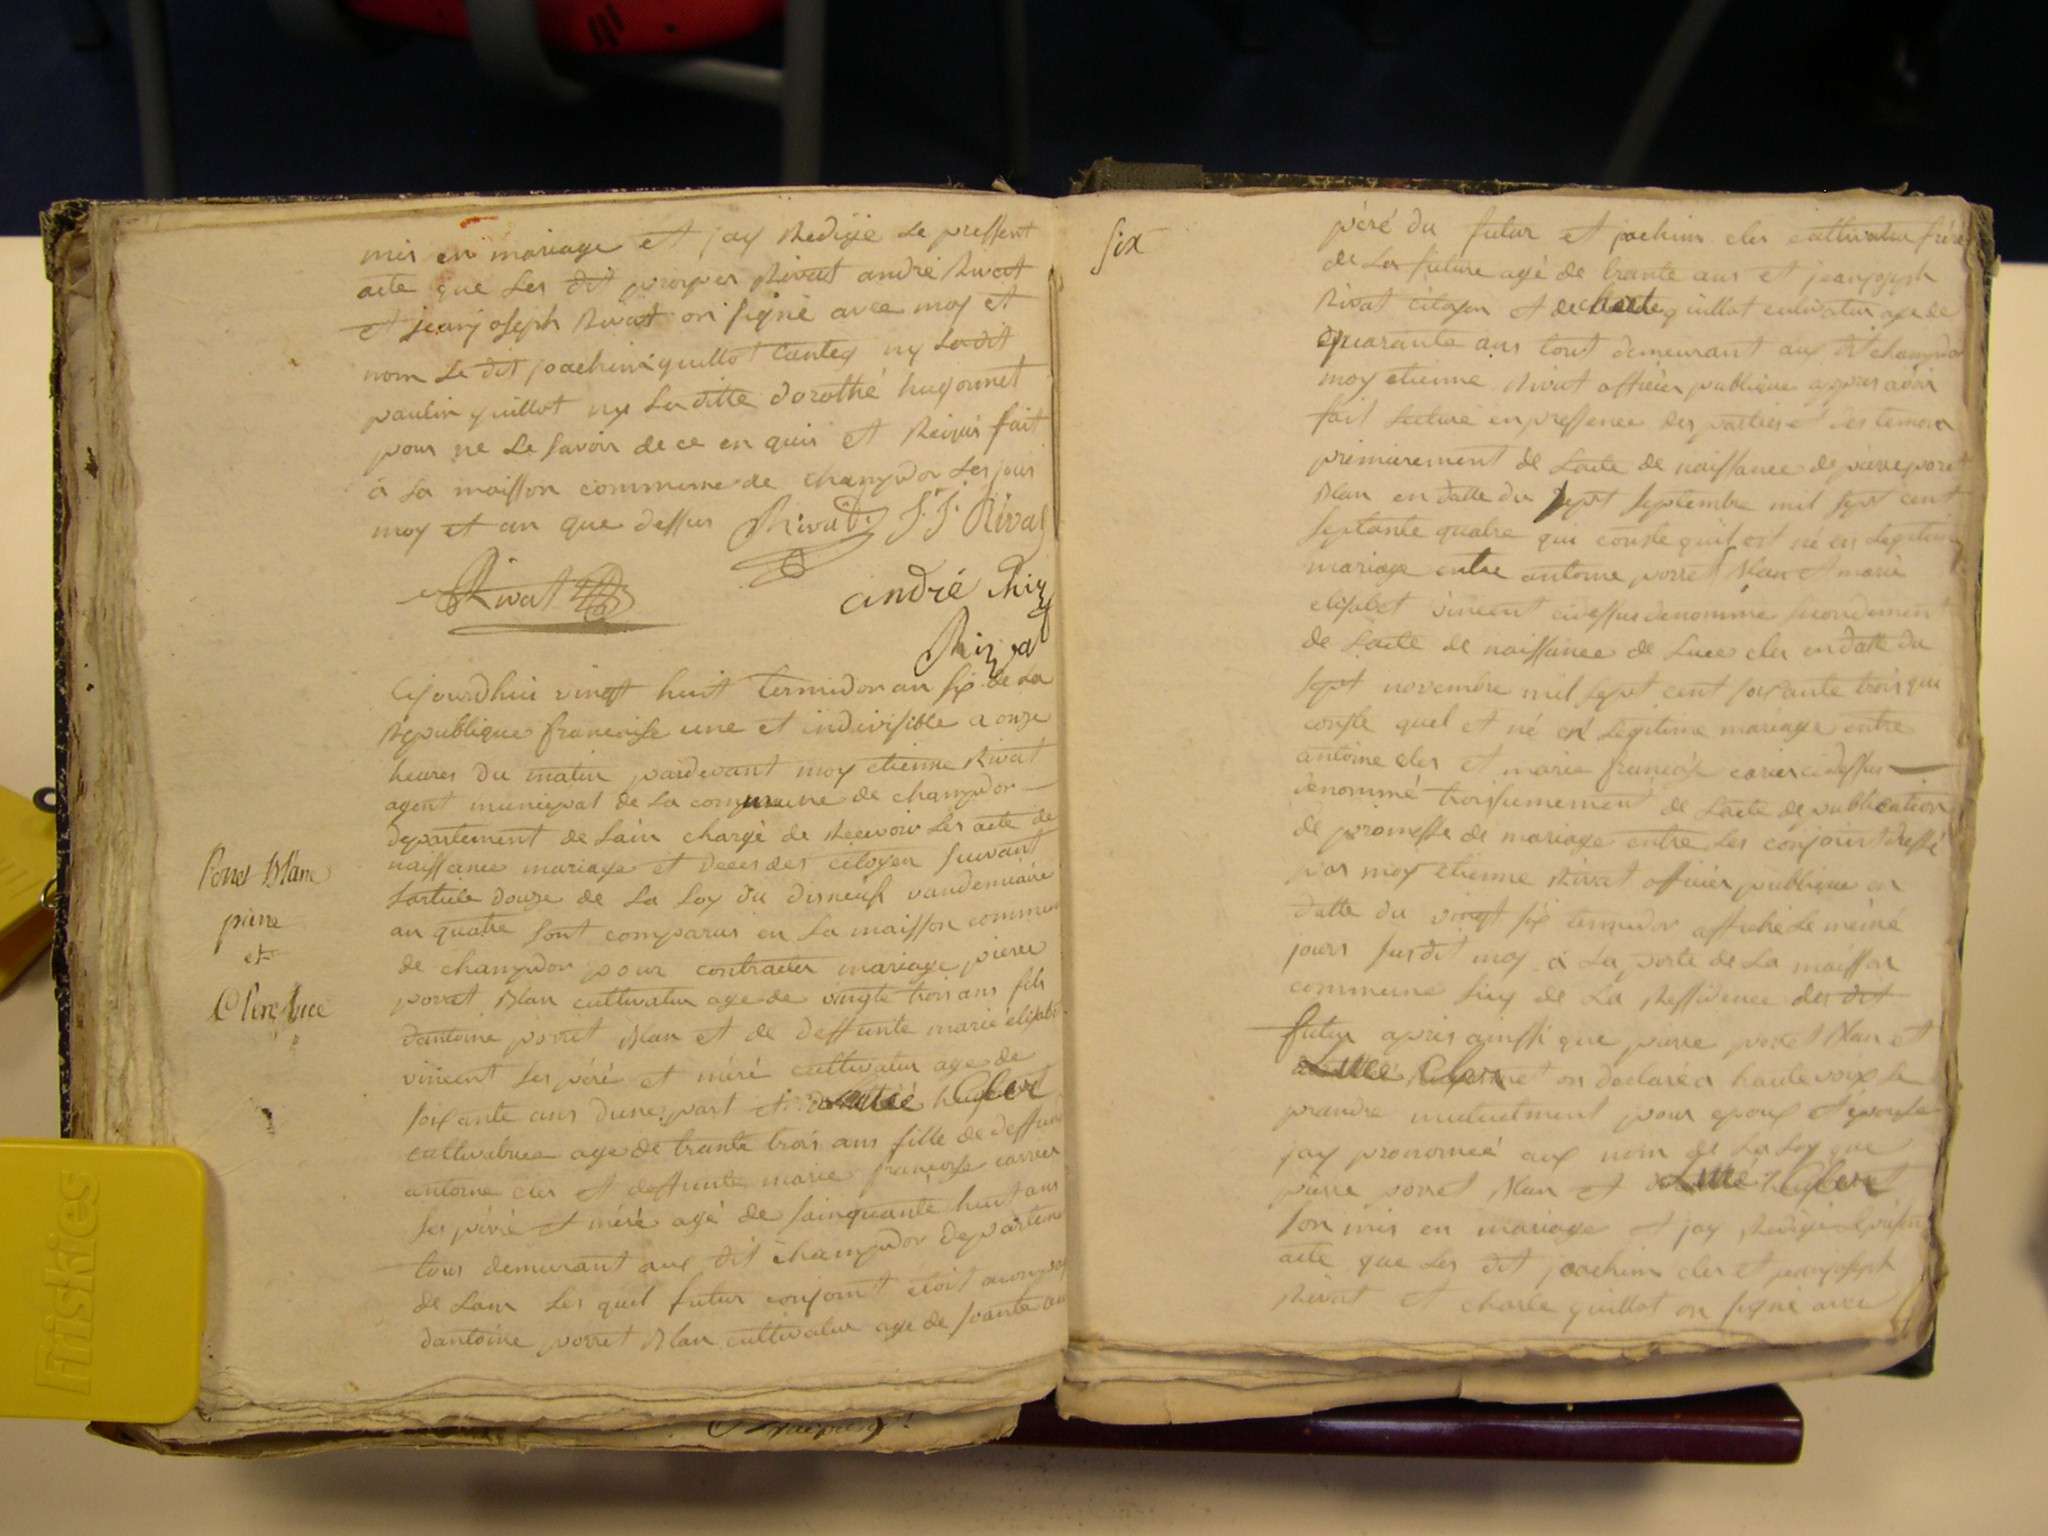 mis en mariage et jay Redigé Le pressent
acte que Les dit prosper Rivat andré Rivat
et jeanjoseph Rivat on signé avec moy et
nom Le dit joachim guillot Cantey ny Ledit
paulin guillot ny Laditte dorothé hugonnet
pour ne Le savoir de ce en quis et Requis fait
à La maisson commune de champdor Les jour
moy et an que dessus Rivat J J Rivat
Rivat
andré Riv
Rivat
Cijourdhui vingt huit termidor an six de La
Republique francaise une et indivisible a onze
heures du matin pardevant moy etienne Rivat
agent municipal de La commune de champdor
departement de Lain chargé de Recevoir Les acte de
naissance mariage et deces des citoyen suivant
Larticle douze de La Loy du disneuf vandemiaire
an quatre sont comparus en La maisson commune
de champdor pour contracter mariage pierre
porret Blan cultivateur age de vingte trois ans fils
dantoine porret Blan et de deffunte marie elisabet
vincent ses péré et méré cultivateur age de
soixante ans dune part et Lucé Cler
cultivatrice age de trante trois ans fille de deffunt
antoine cler et deffunte marie francoise carrier
ses péré et méré agé de sainquante huit ans
tous demurant aux dit champdor departement
de Lain Les quel futur conjoint étoit acompagné
dantoine porret Blan cultivateur age de soixante ans
Porret Blanc
pierre
et
Cler Luce
Friskies
six
péré du futur et joachim cler cultivateur frére
de La future agé de trante ans et jeanjoseph
Rivat citoyen et de charle guillot cultivateur age de
quarante ans tout demeurant aux dit champdor
moy etienne Rivat officier publique appres avoir
fait Lecture en pressence des parties et des temoin
primierement de Lacte de naissance de pierre poret
Blan en datte du sept septembre mil sept cent
septante quatre qui conste quil est né en Legitime
mariage entre antoine porret Blan et marie
elisabet vincent cidessus denommé secondement
de Lacte de naissance de Luce cler en datte du
sept novembre mil sept cent soixante trois qui
conste quel et né en Legitime mariage entre
antoine cler et marie francoise carier cidessus
denommé troisiemement de Lacte de publication
de promesse de mariage entre Les conjoint dressé
par moy etienne Rivat officier publique en
datte du vingt six termidor affiché Le méme
jours susdit moy à La porte de La maisson
commune Lieu de La Ressidence des dit
futur apres aussi que pierre porret Blan et
Lucé Cler on declaré a haute voix se
prandre mutuelment pour epoux et épouse
jay prononcé aux nom de La Loy que
pierre porret Blan et Lucé Cler
son mis en mariage et jay Redigé Le présent
acte que Les dit joachim cler et jeanjoseph
Rivat et charle guillot on signé avec